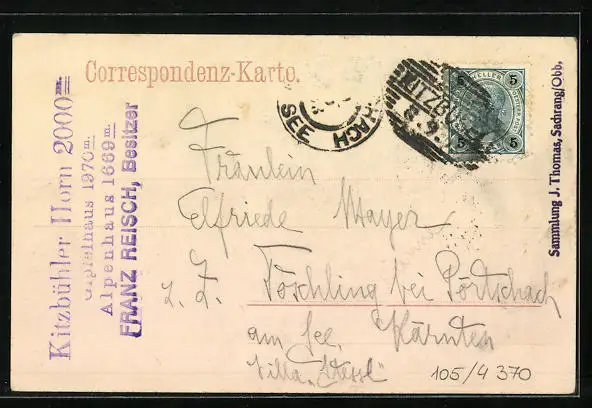 Correspondenz-Karte.
Kitzbühler Horn 2000m.
Gipfelhaus 1970m.
Alpenhaus 1669m.
FRANZ REISCH, Besitzer
HACH
SEE
KITZBÜHEL
8 9
5 HELLER 5
5 5
Sammlung J. Thomas, Sachrang/Obb.
Fräulein
Elfriede Mayer
z. Z. Töschling bei Pörtschach
am See, Kärnten
Villa
105/4 370